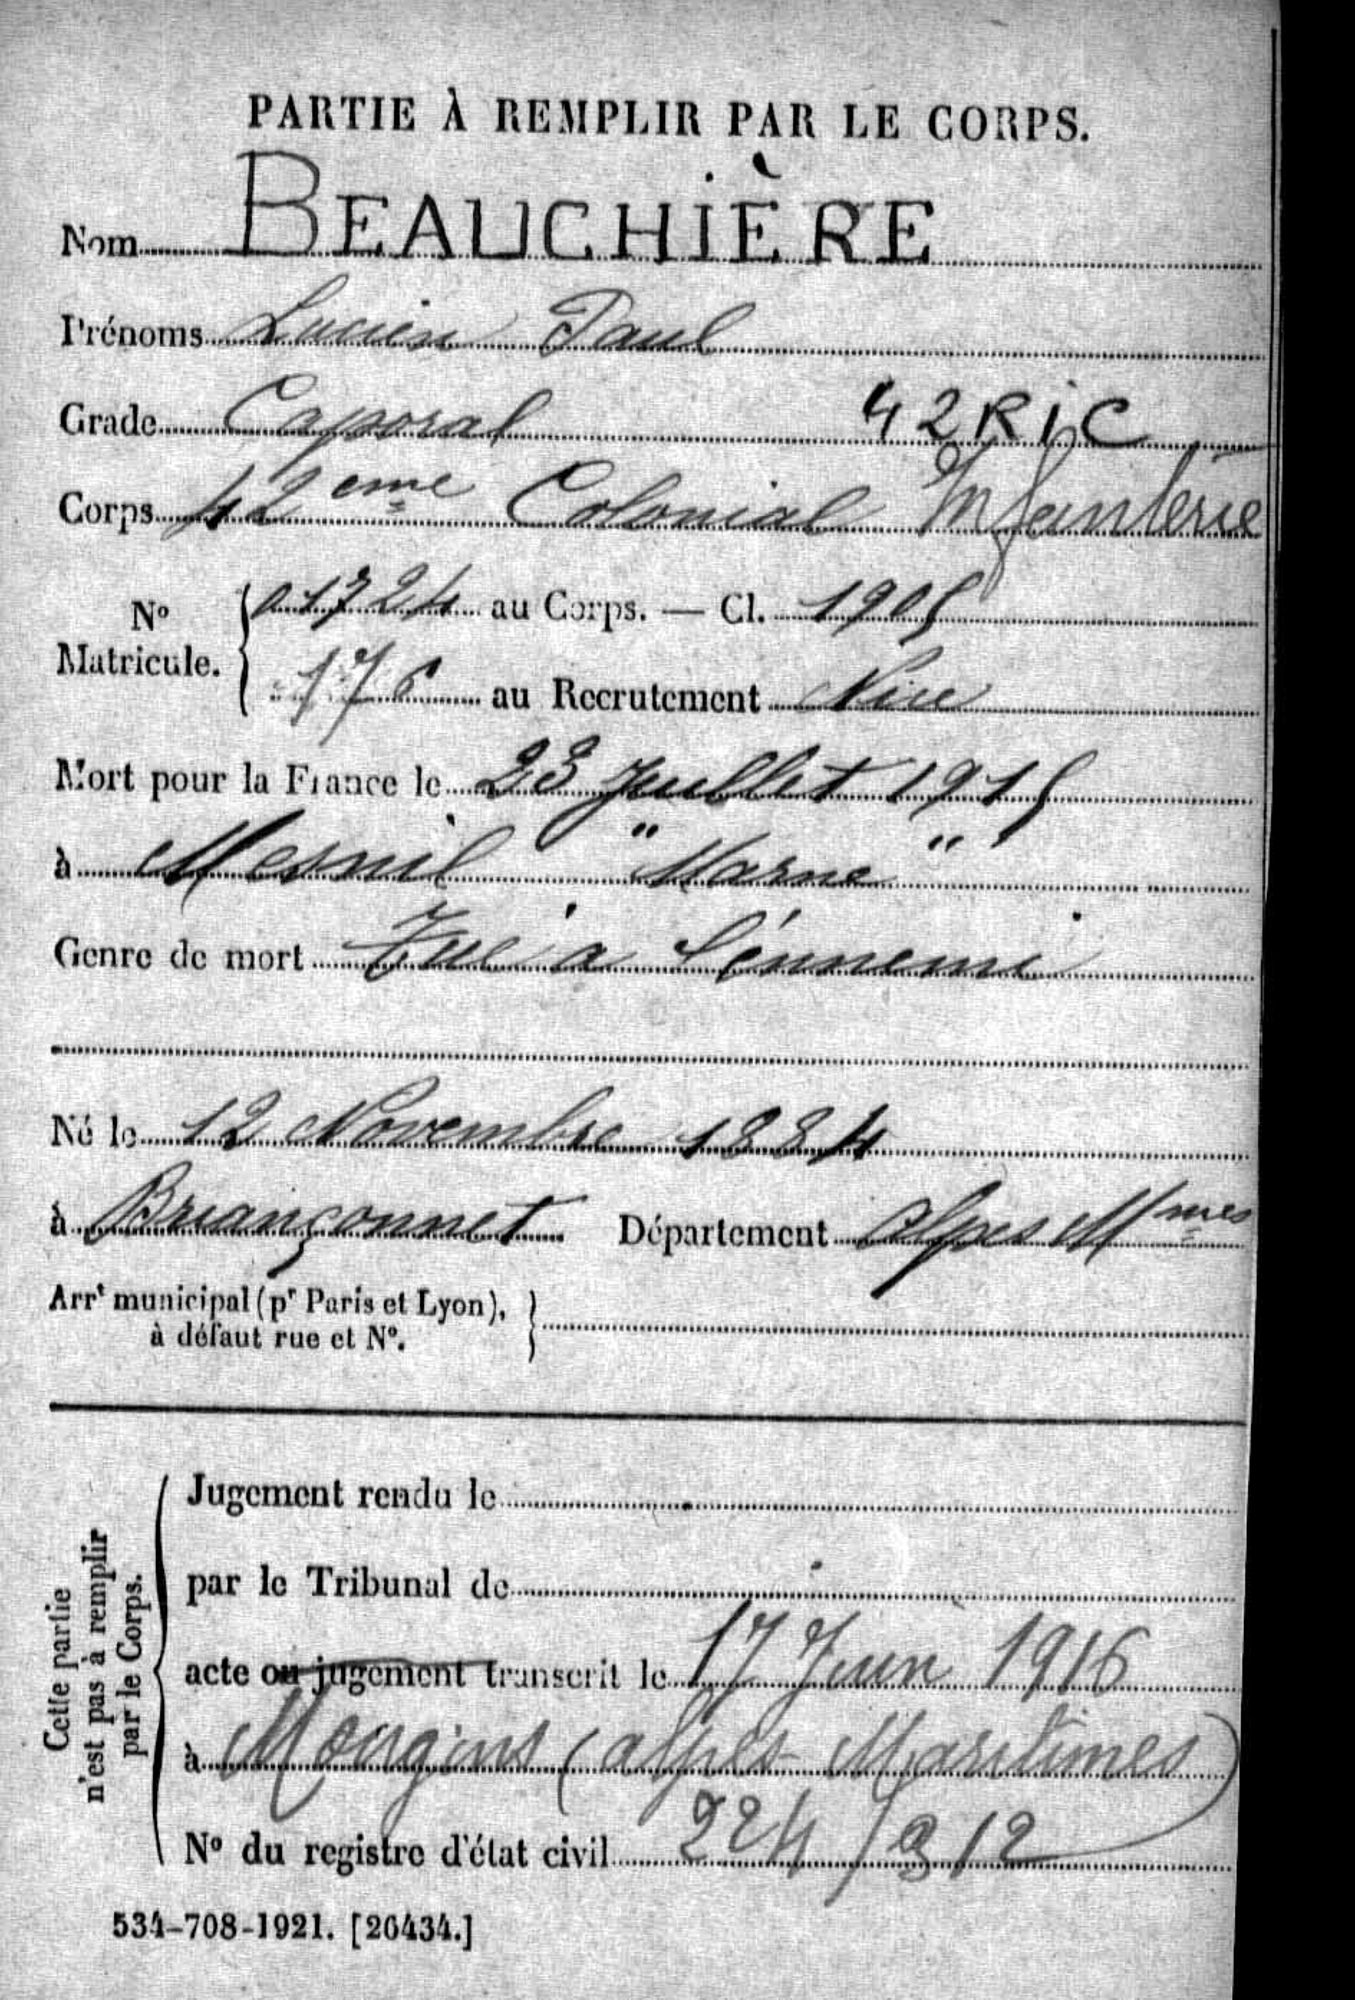 PARTIE À REMPLIR PAR LE CORPS.
Nom BEAUCHIÈRE
Prénoms Lucien Paul
Grade Caporal 42 RIC
Corps 42 eme Colonial Infanterie
N° Matricule. { 01724 au Corps. — Cl. 1905
176 au Recrutement Nice
Mort pour la France le 23 Juillet 1915
à Mesnil "Marne"
Genre de mort Tué à l'énnemi
Né le 12 Novembre 1884
à Briançonnet Département Alpes Mmes
Arrt municipal (pr Paris et Lyon), }
à défaut rue et N°.
Cette partie
n'est pas à remplir
par le Corps.
Jugement rendu le
par le Tribunal de
acte ou jugement transcrit le 17 Juin 1916
à Mougins (Alpes-Maritimes)
N° du registre d'état civil 224/312
534-708-1921. [26434.]